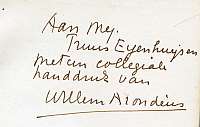 Aan Mej.
Truus Eygenhuijsen
met een collegiale
handdruk van
Willem Arondéus